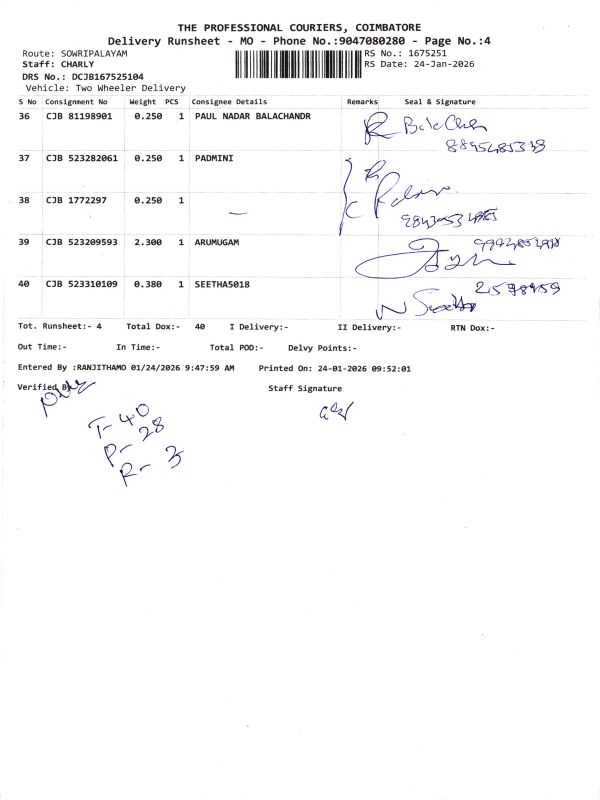 THE PROFESSIONAL COURIERS, COIMBATORE
Delivery Runsheet - MO - Phone No.:9047080280 - Page No.:4
Route: SOWRIPALAYAM RS No.: 1675251
Staff: CHARLY RS Date: 24-Jan-2026
DRS No.: DCJB167525104
Vehicle: Two Wheeler Delivery
S No Consignment No Weight PCS Consignee Details Remarks Seal & Signature
36 CJB 81198901 0.250 1 PAUL NADAR BALACHANDR
37 CJB 523282061 0.250 1 PADMINI
38 CJB 1772297 0.250 1
39 CJB 523209593 2.300 1 ARUMUGAM
40 CJB 523310109 0.380 1 SEETHA5018
Tot. Runsheet:- 4 Total Dox:- 40 I Delivery:- II Delivery:- RTN Dox:-
Out Time:- In Time:- Total POD:- Delvy Points:-
Entered By :RANJITHAMO 01/24/2026 9:47:59 AM Printed On: 24-01-2026 09:52:01
Verified By Staff Signature
T- 40
P- 28
R- 3